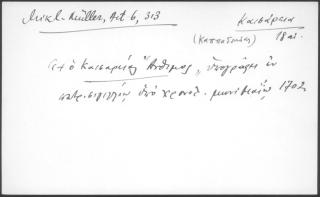 Mikl.-Müller, Act 6, 313
Καισάρεια
(Καππαδοκίας) 18 αι.
(+ ὁ Καισαρείας Ἄνθιμος, ὑπογράφει ἐν
πατρ. σιγιλλίῳ ὑπὸ χρονολ. 1702